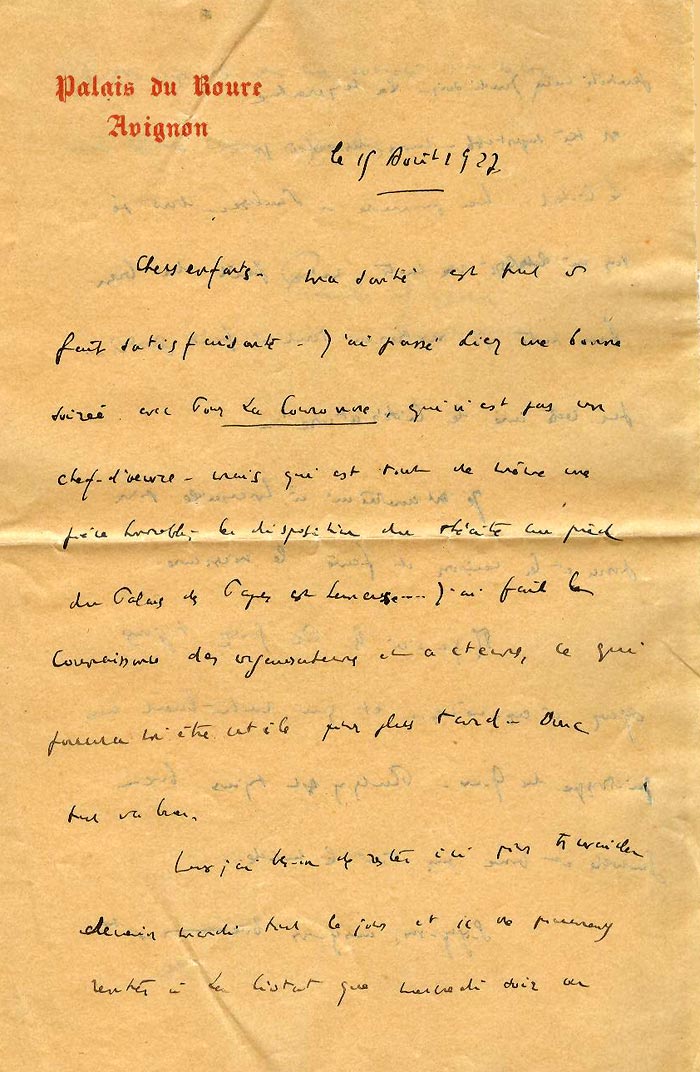 Palais du Roure
Avignon
le 15 Août 1927
Chers enfants - ma santé est tout à
fait satisfaisante - J'ai passé hier une bonne
soirée avec La Couronne, qui n'est pas un
chef-d'œuvre - mais qui est tout de même une
pièce honorable, la disposition du théâtre au pied
du Palais des Papes est heureuse --- J'ai fait la
connaissance des organisateurs et acteurs, ce qui
pourra m'être utile pour plus tard - Donc
tout va bien.
j'ai besoin de rester ici pour travailler
demain mardi tout le jour et je ne pourrai
rentrer à La Ciotat que mercredi soir ou